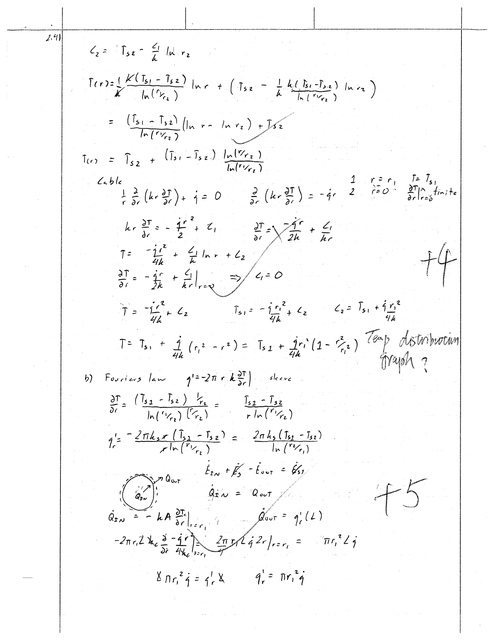 2.41
C₂ = Ts2 - C₁/k ln r₂
T(r) = 1/k k(Ts1 - Ts2)/ln(r₁/r₂) ln r + (Ts2 - 1/k k(Ts1 - Ts2)/ln(r₁/r₂) ln r₂)
= (Ts1 - Ts2)/ln(r₁/r₂) (ln r - ln r₂) + Ts2
T(r) = Ts2 + (Ts1 - Ts2) ln(r/r₂)/ln(r₁/r₂)
Cable
1 r = r₁ T = Ts1
1/r ∂/∂r (kr ∂T/∂r) + q̇ = 0 ∂/∂r (kr ∂T/∂r) = -q̇r 2 r = 0 ∂T/∂r|r=0 finite
kr ∂T/∂r = -q̇r²/2 + C₁ ∂T/∂r = -q̇r/2k + C₁/kr
T = -q̇r²/4k + C₁/k ln r + C₂
+4
∂T/∂r = -q̇r/2k + C₁/kr |r=0 ⇒ C₁ = 0
T = -q̇r²/4k + C₂ Ts1 = -q̇r₁²/4k + C₂ C₂ = Ts1 + q̇r₁²/4k
T = Ts1 + q̇/4k (r₁² - r²) = Ts1 + q̇r₁²/4k (1 - r²/r₁²)
Temp distribution graph ?
b) Fouriers law q' = -2πrk ∂T/∂r| sleeve
∂T/∂r = (Ts1 - Ts2)/ln(r₁/r₂) = Ts1 - Ts2/r ln(r₁/r₂)
q'r = -2πks r (Ts1 - Ts2)/r ln(r₁/r₂) = 2πks(Ts1 - Ts2)/ln(r₂/r₁)
ĖIN + Ėg - Ėout = Ėst
QIN QOUT
Q̇IN = QOUT
+5
Q̇IN = -kA ∂T/∂r |r=r₁ Q̇OUT = q'r (L)
= πr₁²Lq̇
πr₁²q̇ = q'r q'r = πr₁²q̇